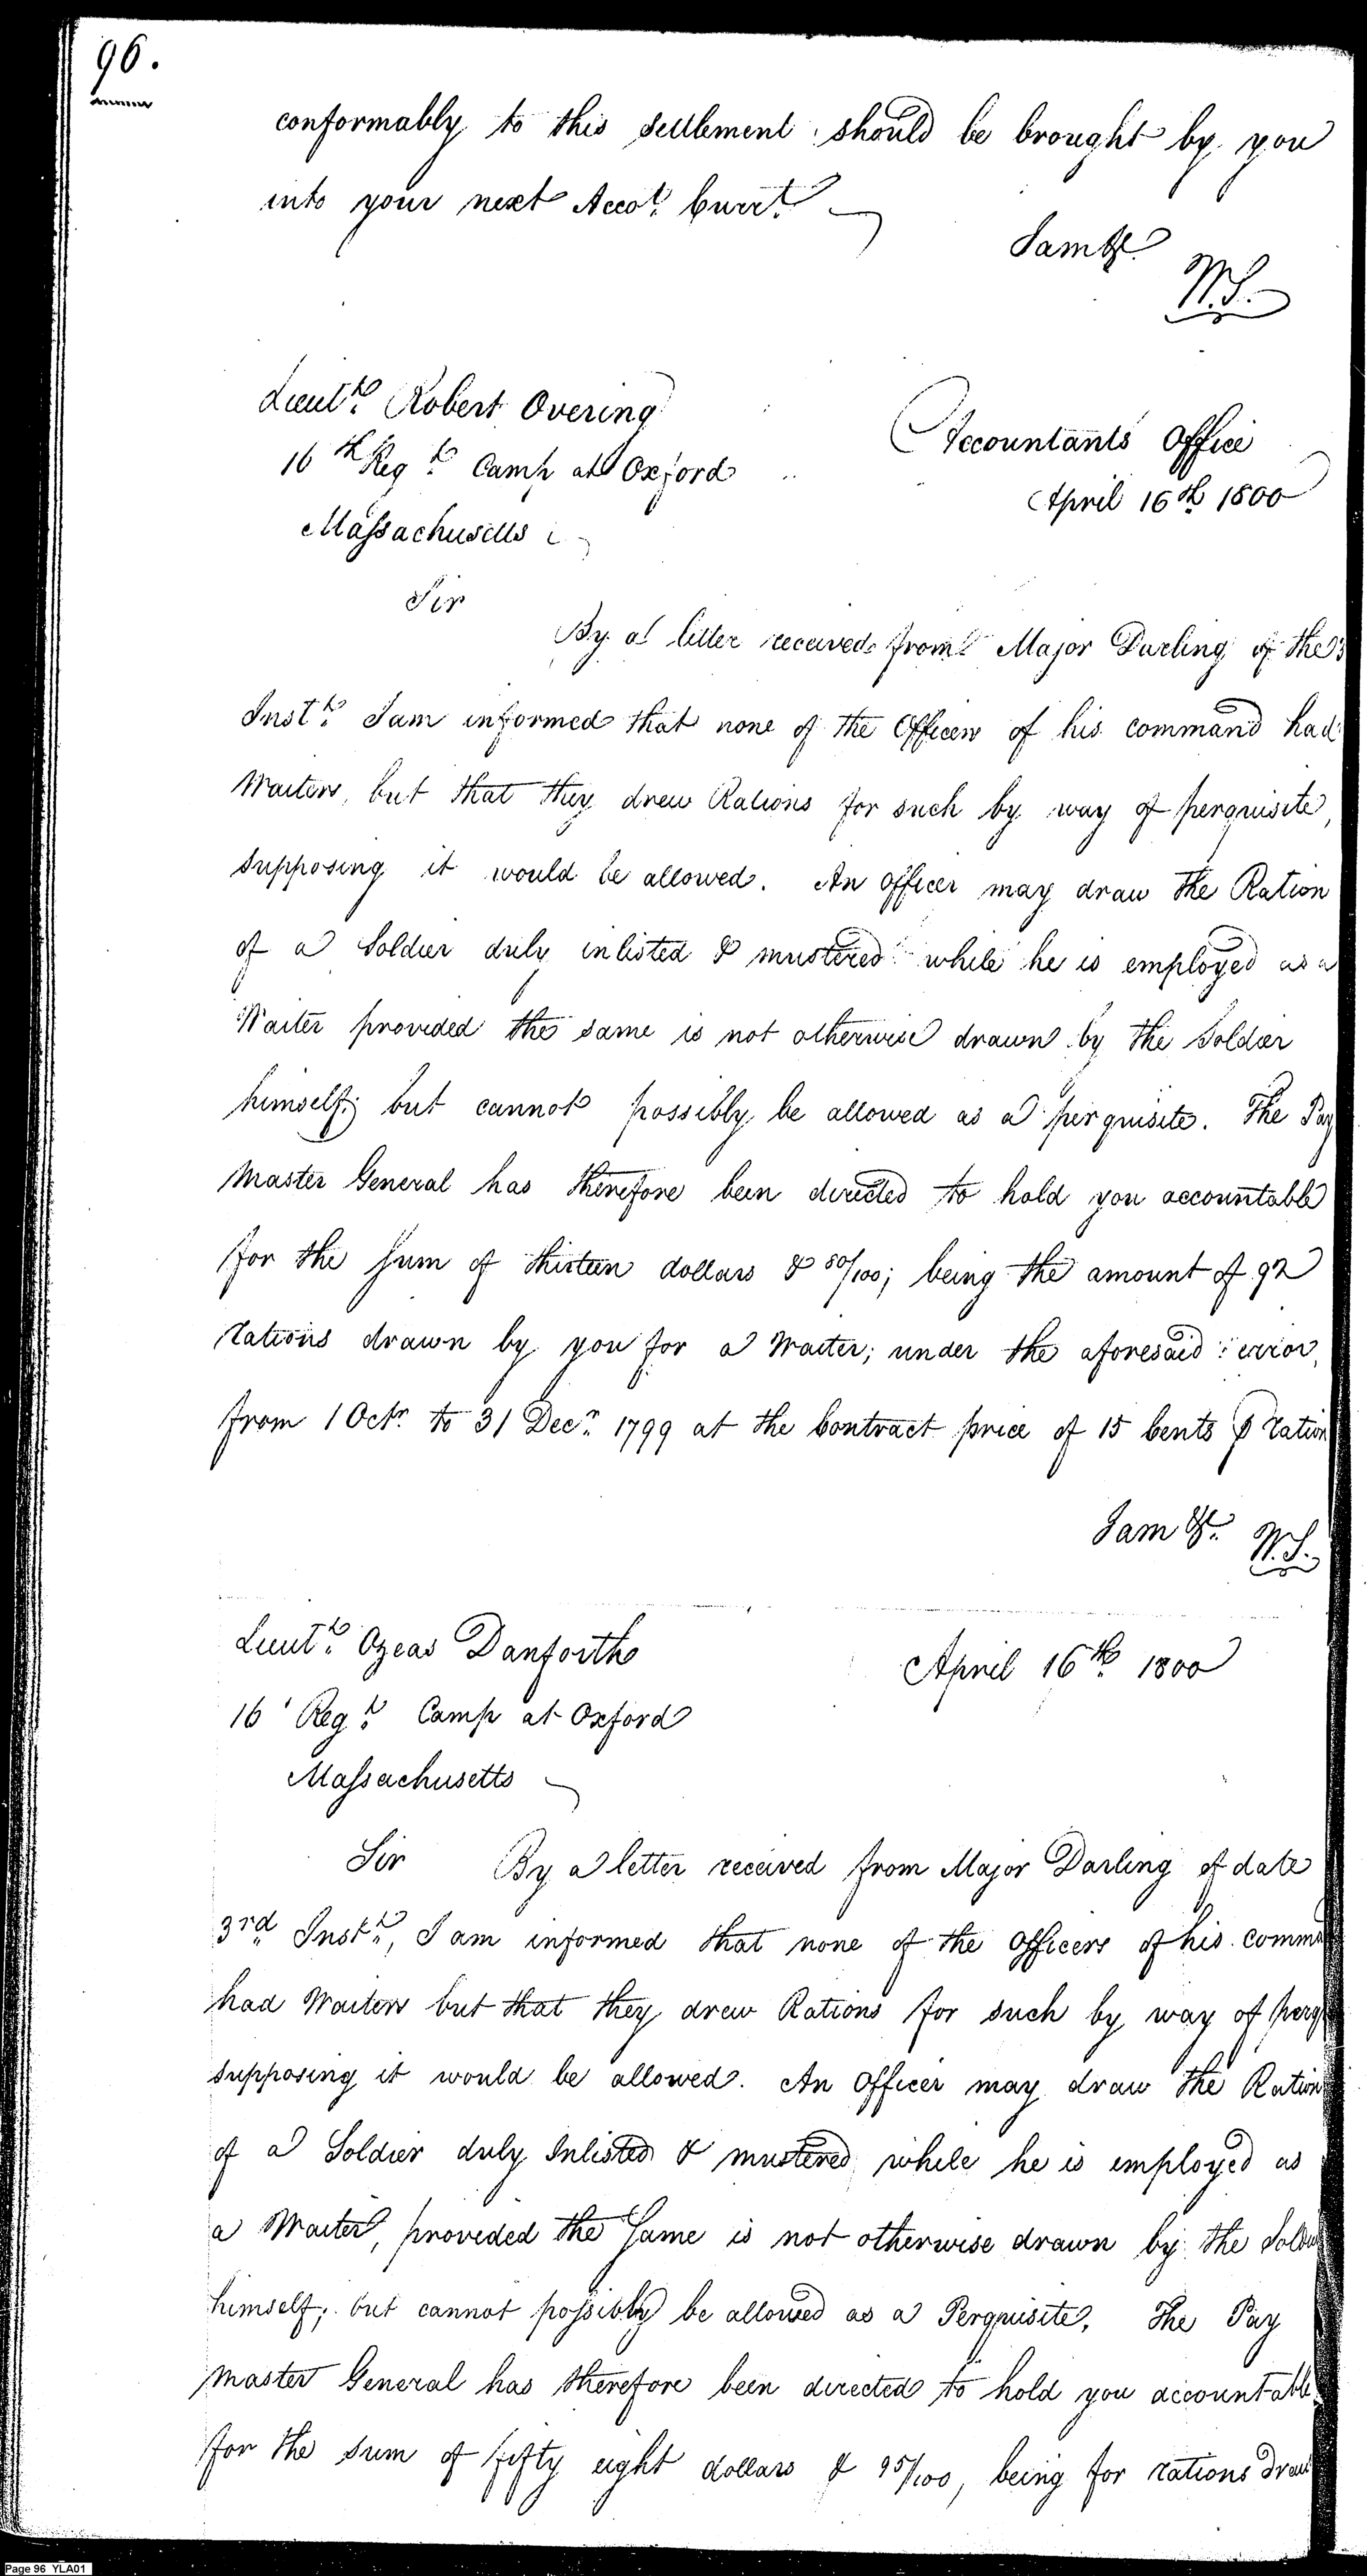 96.
conformably to this settlement should be brought by you
into your next Accot. Currt.
I am &c.
W.S.
Lieut.t Robert Overing
16th Reg.t Camp at Oxford
Massachusetts
Accountants Office
April 16th 1800
Sir
By a letter received from Major Darling of the 3
Inst.t I am informed that none of the Officers of his command had
Waiters, but that they drew Rations for such by way of perquisite,
supposing it would be allowed. An officer may draw the Ration
of a Soldier duly inlisted & mustered while he is employed as a
Waiter provided the same is not otherwise drawn by the Soldier
himself; but cannot possibly be allowed as a perquisite. The Pay
Master General has therefore been directed to hold you accountable
for the Sum of thirteen dollars & 80/100; being the amount of 92
rations drawn by you for a Waiter; under the aforesaid error,
from 1 Octr. to 31 Decr. 1799 at the Contract price of 15 Cents ⅌ ration
I am &c. W.S.
Lieut.t Ozeas Danforth
16 Reg.t Camp at Oxford
Massachusetts
April 16th 1800
Sir By a letter received from Major Darling of date
3rd Inst.t, I am informed that none of the Officers of his comma
had Waiters but that they drew Rations for such by way of perq
supposing it would be allowed. An Officer may draw the Ration
of a Soldier duly Inlisted & mustered while he is employed as
a Waiter, provided the Same is not otherwise drawn by the Soldier
himself; but cannot possibly be allowed as a Perquisite. The Pay
Master General has therefore been directed to hold you accountable
for the sum of fifty eight dollars & 95/100, being for rations drawn
Page 96 YLA01